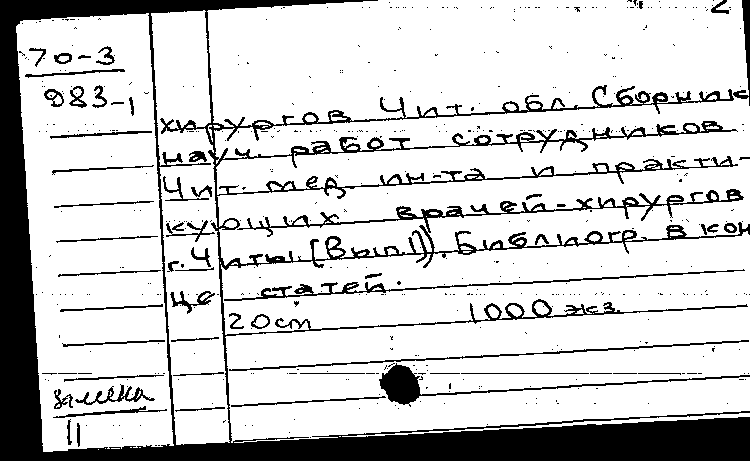 2
70-3
983-1
хирургов Чит. обл. Сборник
науч. работ сотрудников
Чит. мед. ин-та и практи-
кующих врачей-хирургов
г. Читы. [Вып. 1]). Библиогр. в кон
це статей.
20 см 1000 экз.
замена
11